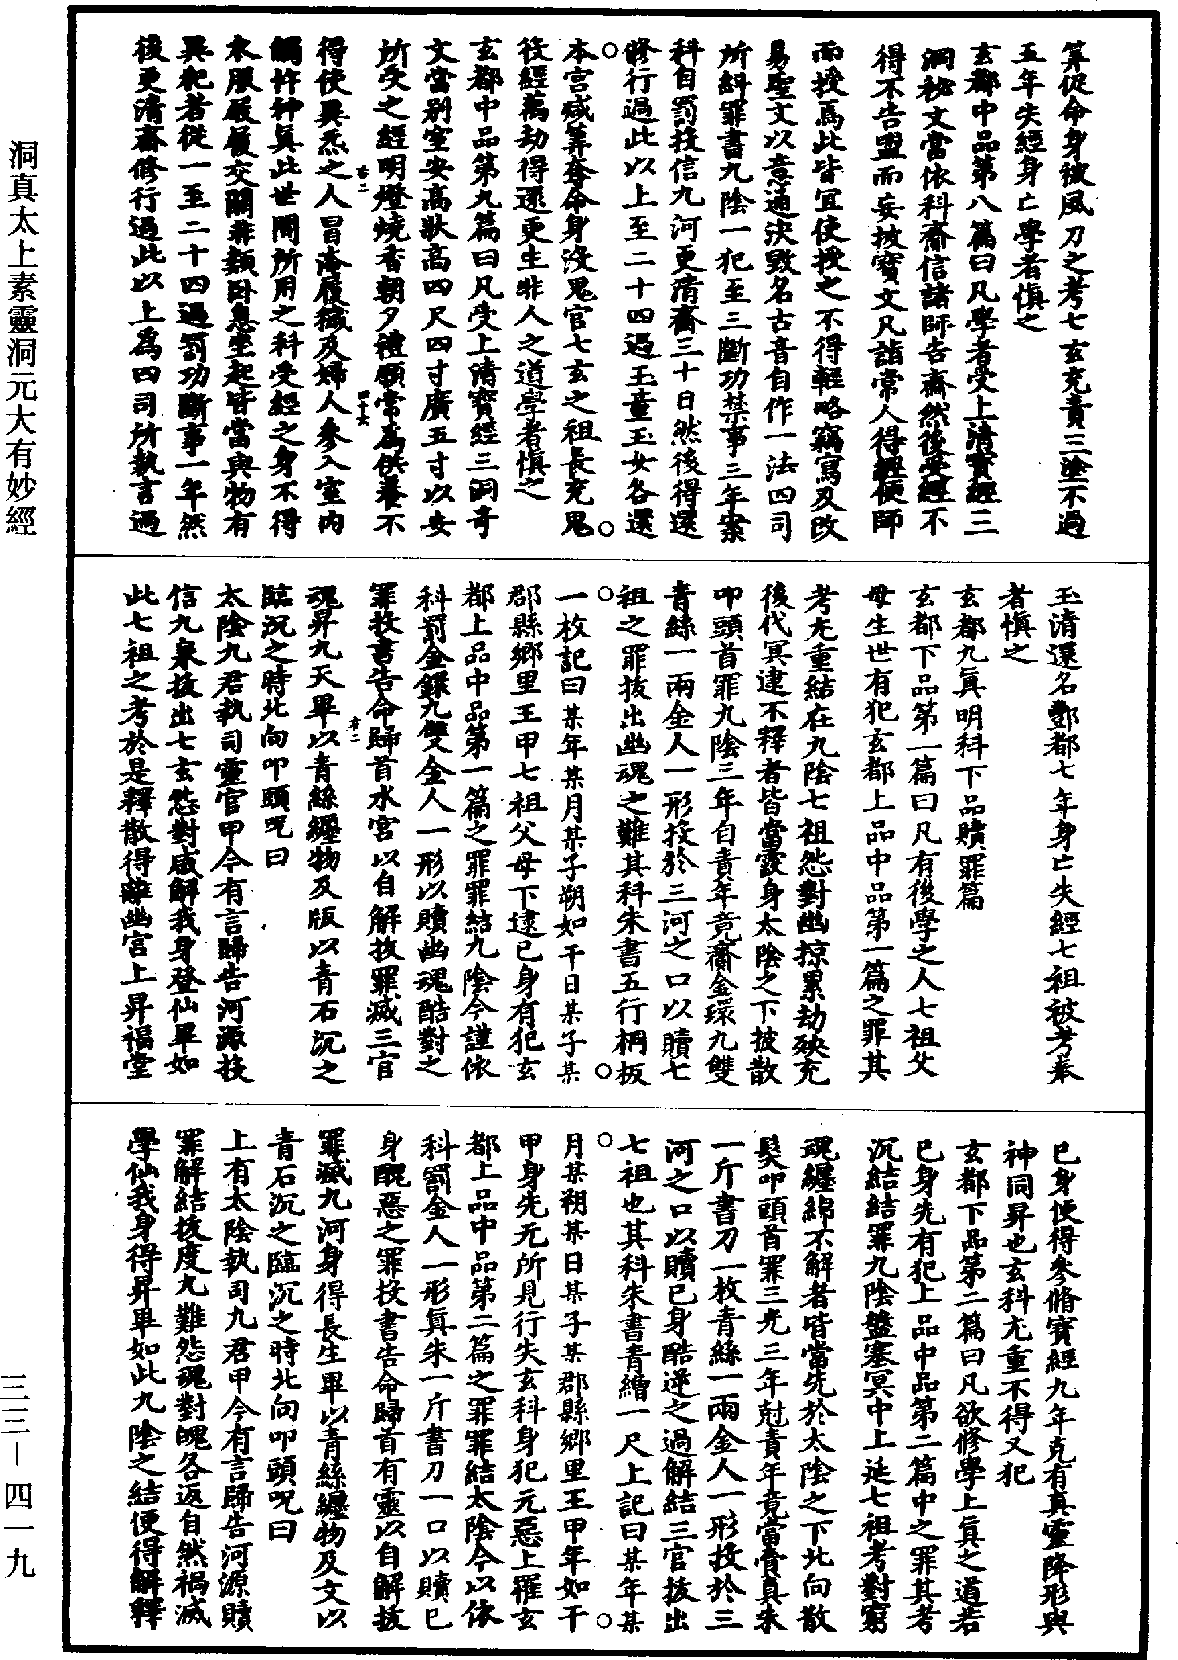 筭促命身被風刀之考七玄充責三塗不過
五年失經身亡學者慎之
玄都中品第八篇曰凡學者受上清寶經三
洞秘文當依科齋信詣師告齋然後受經不
得不告盟而妄披寶文凡詣常人得經便師
而授焉此皆宜使授之不得輕略竊寫及改
易聖文以意通決毀名古音自作一法四司
所糾罪書九陰一犯至三斷功禁事三年案
科自罰投信九河更清齋三十日然後得還
修行過此以上至二十四過玉童玉女各還
本宮滅筭奪命身沒鬼官七玄之祖長充鬼
役經萬劫得還更生非人之道學者慎之
玄都中品第九篇曰凡受上清寶經三洞奇
文當別室安高牀高四尺四寸廣五寸以安
所受之經明燈燒香朝夕禮願常爲供養不
得使異炁之人冒淹履穢及婦人參入室內
觸忤神真此世間所用之科受經之身不得
衣服履屐交關非類卧息坐起皆當與物有
異犯者從一至二十四過罰功斷事一年然
後更清齋修行過此以上爲四司所執言過
玉清還名酆都七年身亡失經七祖被考奉
者慎之
玄都九真明科下品贖罪篇
玄都下品第一篇曰凡有後學之人七祖父
母生世有犯玄都上品中品第一篇之罪其
考尤重結在九陰七祖怨對幽掠累劫殃充
後代冥逮不釋者皆當露身太陰之下披散
叩頭首罪九陰三年自責年竟齎金環九雙
青絲一兩金人一形投於三河之口以贖七
祖之罪拔出幽魂之難其科朱書五行桐板
一枚記曰某年某月某子朔如干日某子某
郡縣鄉里王甲七祖父母下逮已身有犯玄
都上品中品第一篇之罪罪結九陰今謹依
科罰金鐶九雙金人一形以贖幽魂酷對之
罪投書告命歸首水宮以自解拔罪滅三官
魂昇九天畢以青絲纏物及版以青石沉之
臨沉之時北向叩頭呪曰
太陰九君執司靈官甲今有言歸告河源投
信九泉拔出七玄怨對咸解我身登仙畢如
此七祖之考於是釋散得離幽宮上昇福堂
已身便得參脩寶經九年克有真靈降形與
神同昇也玄科尤重不得又犯
玄都下品第二篇曰凡欲修學上真之道若
已身先有犯上品中品第二篇中之罪其考
沉結結罪九陰盤塞冥中上延七祖考對窮
魂纏綿不解者皆當先於太陰之下北向散
髮叩頭首罪三光三年尅責年竟當賷真朱
一斤書刀一枚青絲一兩金人一形投於三
河之口以贖已身酷逆之過解結三官拔出
七祖也其科朱書青繒一尺上記曰某年某
月某朔某日某子某郡縣鄉里王甲年如干
甲身先无所見行失玄科身犯元惡上罹玄
都上品中品第二篇之罪罪結太陰今以依
科罰金人一形真朱一斤書刀一口以贖已
身醜惡之罪投書告命歸首有靈以自解拔
罪滅九河身得長生畢以青絲纏物及文以
青石沉之臨沉之時北向叩頭呪曰
上有太陰執司九君甲今有言歸告河源贖
罪解結拔度九難怨魂對魄各返自然禍滅
學仙我身得昇畢如此九陰之結便得解釋
洞真太上素靈洞元大有妙經
三三—四一九